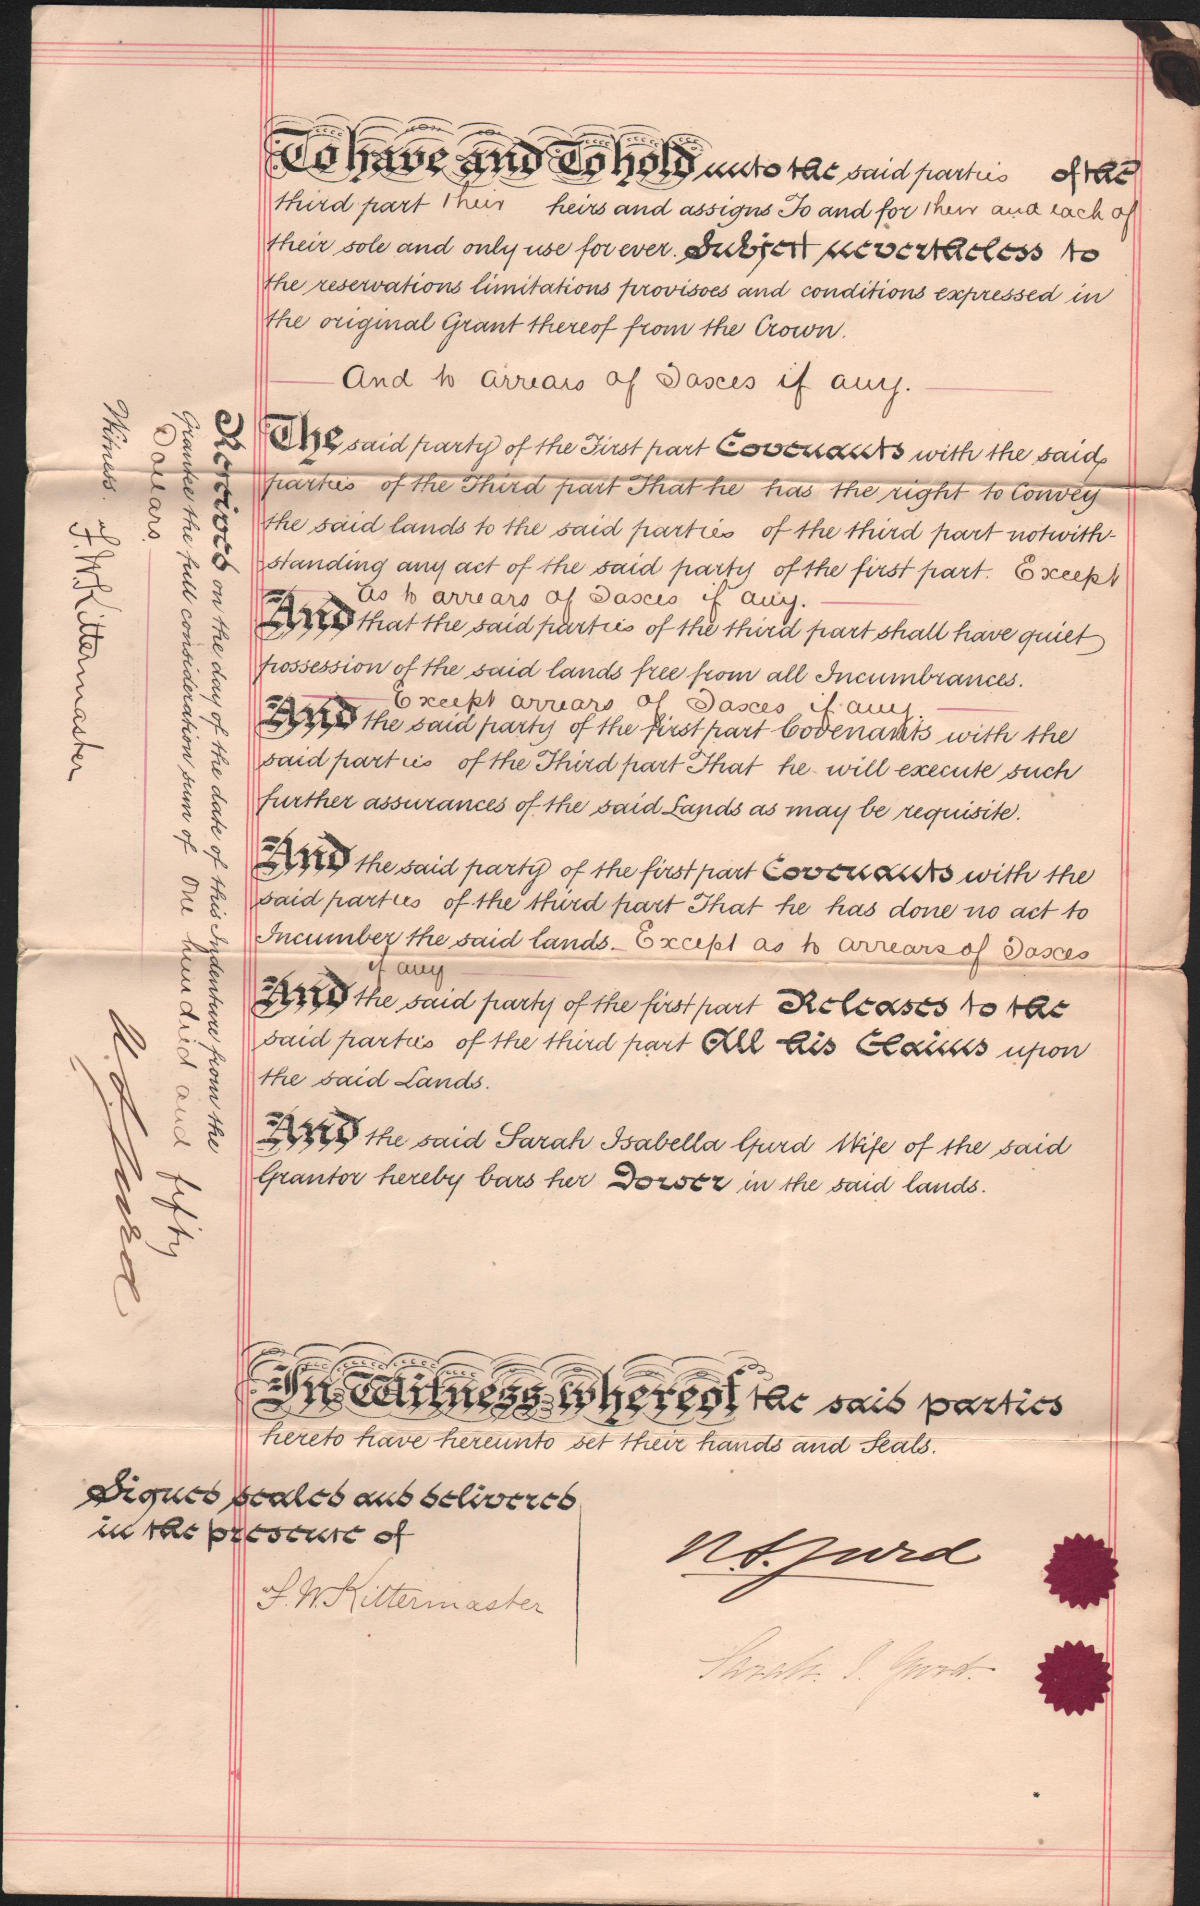 To have and To hold unto the said parties of the
third part their heirs and assigns To and for their and each of
their sole and only use for ever. Subject nevertheless to
the reservations limitations provisoes and conditions expressed in
the original Grant thereof from the Crown.
And to arrears of Taxes if any.
The said party of the First part Covenants with the said
parties of the Third part That he has the right to Convey
the said lands to the said parties of the third part notwith-
standing any act of the said party of the first part. Except
as to arrears of Taxes if any.
And that the said parties of the third part shall have quiet
possession of the said lands free from all Incumbrances.
Except arrears of Taxes if any
And the said party of the first part Covenants with the
said parties of the Third part That he will execute such
further assurances of the said Lands as may be requisite.
And the said party of the first part Covenants with the
said parties of the third part That he has done no act to
Incumber the said lands. Except as to arrears of Taxes
if any
And the said party of the first part Releases to the
said parties of the third part All his Claims upon
the said Lands.
And the said Sarah Isabella Gurd Wife of the said
Grantor hereby bars her Dower in the said lands.
In Witness whereof the said parties
hereto have hereunto set their hands and Seals.
Signed sealed and delivered
in the presence of
F. W. Kittermaster
N. S. Gurd
Sarah. I. Gurd.
Received on the day of the date of this Indenture from the
Grantee the full consideration sum of One hundred and fifty
Dollars
Witness.
F. W. Kittermaster
N. S. Gurd